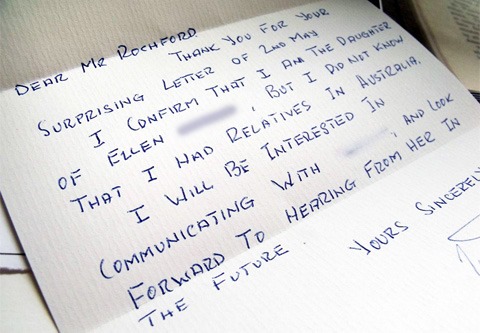 DEAR MR ROCHFORD
THANK YOU FOR YOUR
SURPRISING LETTER OF 2ND MAY
I CONFIRM THAT I AM THE DAUGHTER
OF ELLEN , BUT I DID NOT KNOW
THAT I HAD RELATIVES IN AUSTRALIA.
I WILL BE INTERESTED IN
COMMUNICATING WITH , AND LOOK
FORWARD TO HEARING FROM HER IN
THE FUTURE.
YOURS SINCERELY